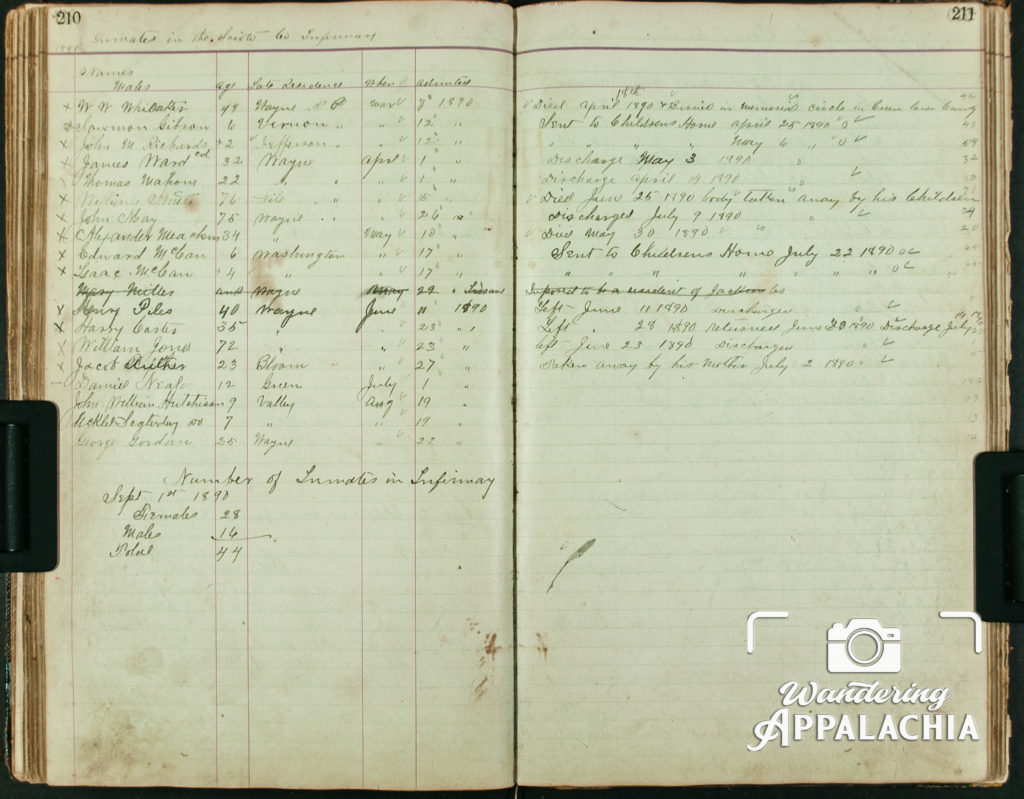 210
Inmates in the Scioto Co Infirmary
1890
Names
Males age Late Residence When admitted
x W W Whitaker 49 Wayne Mar 8 1890
Gibson 6 Vernon " " 12 "
x John M Richards 2 Jefferson " " 12 "
x James Ward col 32 Wayne April 1 "
Thomas Malone 22 " " " 1 "
x William 76 " 5 "
x John May 75 Wayne " " " 26 "
x Alexander 34 " May 10 "
x Edward McCan 6 Washington " 17 "
x Isaac McCan 4 " " 17 "
Mary Miller Wayne May 29 " Insane
x Henry Piles 40 Wayne June 11 1890
x Harry Carter 35 " " 23 "
x William Jones 72 " " 23 "
x Jacob 23 Bloom " " 27 "
Daniel Neafe 12 Green July 1 "
John William Hutchison 9 Valley Aug 19 "
do 7 " " 19 "
George Gordan 25 Wayne " 22 "
Number of Inmates in Infirmay
Sept 1st 1890
Females 28
Males 16
Total 44
211
Died April 18th 1890 & Buried in Memorial circle in
Sent to Childrens Home April 25 1890
" " " " May 6 "
Discharge May 3 1890
Discharge April 19 1890
Died June 25 1890 body taken away by his Children
Discharged July 9 1890
Died May 30 1890
Sent to Childrens Home July 22 1890
" " " " " " "
to be a resident of Jackson Co
Left June 11 1890 Discharged
Left " 28 1890 returned June 1890 Discharge July
Left June 23 1890 Discharged
Taken away by his Mother July 2 1890
Wandering
Appalachia